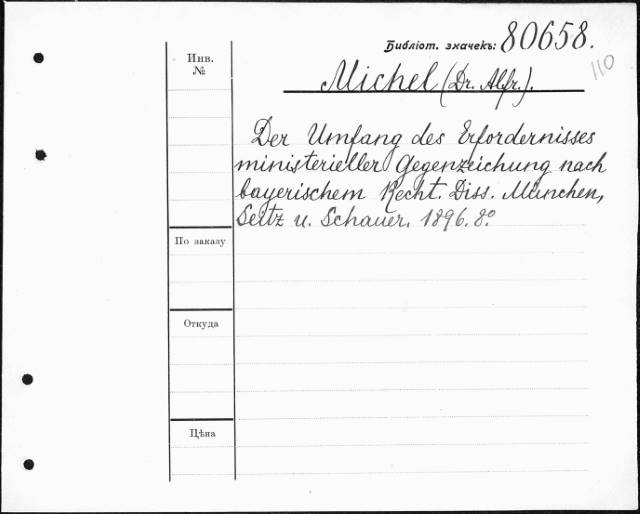 Библіот. значекъ: 80658.
110
Инв.
№
Michel (Dr. Alfr.).
Der Umfang des Erfordernisses
ministerieller Gegenzeichung nach
bayerischem Recht. Diss. München,
Seitz u. Schauer. 1896. 8º
По заказу
Откуда
Цѣна